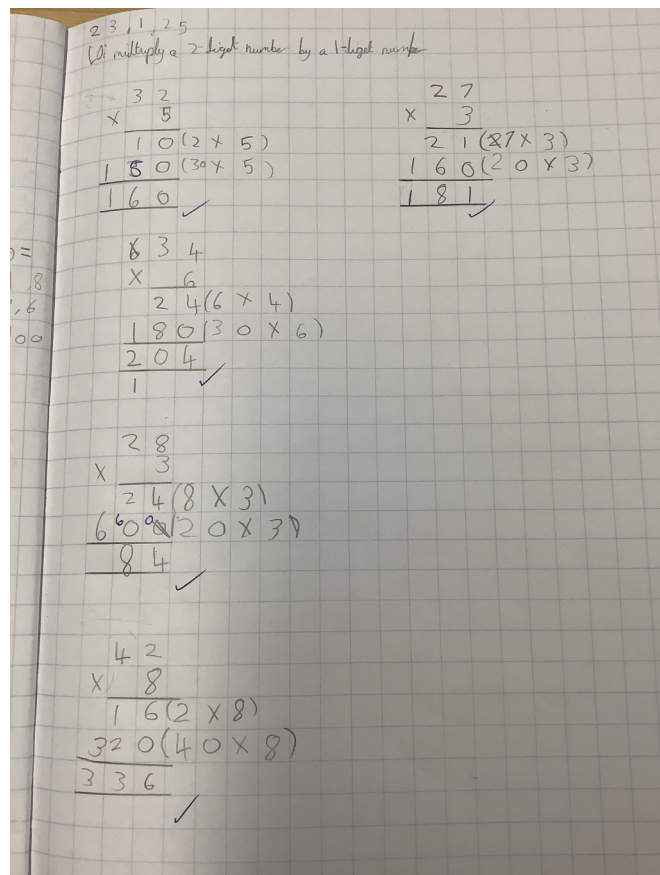 23.1.25
LO: multiply a 2-diget number by a 1-diget number
32
× 5
10(2 × 5)
150(30 × 5)
160
27
× 3
21(7 × 3)
160(20 × 3)
181
34
× 6
24(6 × 4)
180(30 × 6)
204
1
28
× 3
24(8 × 3)
60(20 × 3)
84
42
× 8
16(2 × 8)
320(40 × 8)
336
)=
8
,6
00